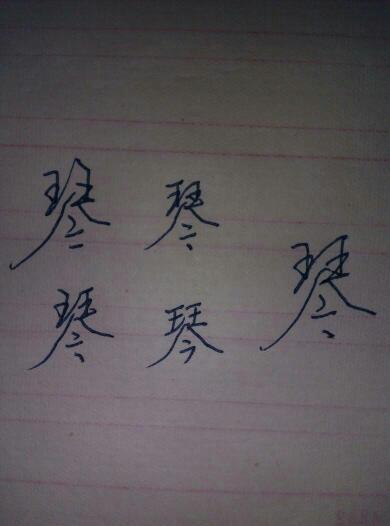 琴 琴
琴
琴 琴